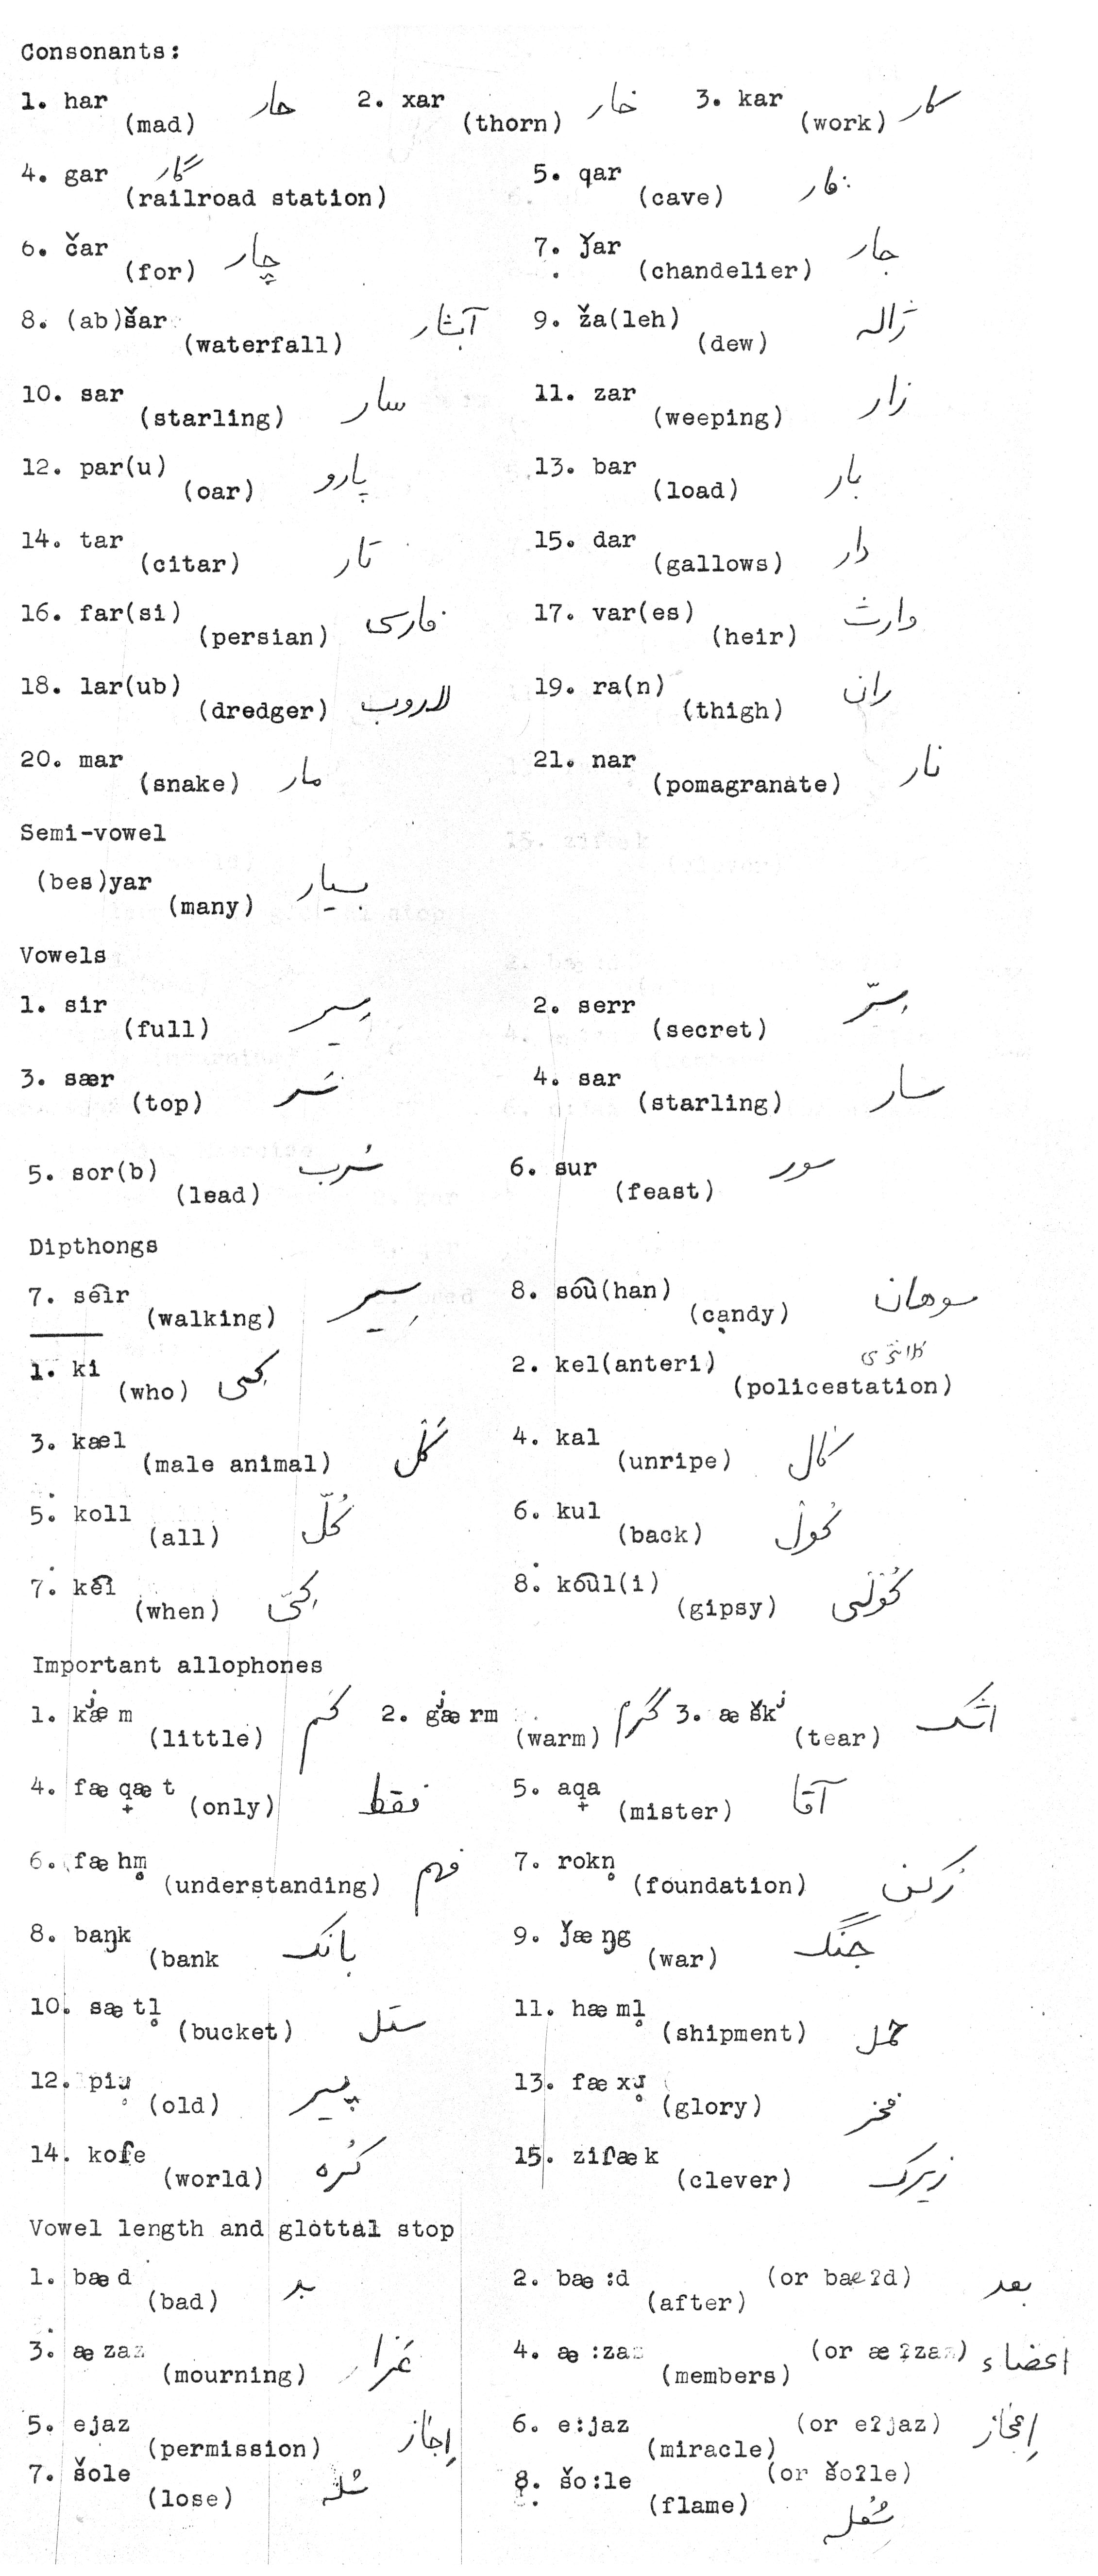 Consonants:
1. har (mad) هار 2. xar (thorn) خار 3. kar (work) کار
4. gar (railroad station) گار 5. qar (cave) غار
6. čar (for) چار 7. ǰar (chandelier) جار
8. (ab)šar (waterfall) آبشار 9. ža(leh) (dew) ژاله
10. sar (starling) سار 11. zar (weeping) زار
12. par(u) (oar) پارو 13. bar (load) بار
14. tar (citar) تار 15. dar (gallows) دار
16. far(si) (persian) فارسی 17. var(es) (heir) وارث
18. lar(ub) (dredger) لاروب 19. ra(n) (thigh) ران
20. mar (snake) مار 21. nar (pomagranate) نار
Semi-vowel
(bes)yar (many) بسیار
Vowels
1. sir (full) سیر 2. serr (secret) سِرّ
3. sær (top) سَر 4. sar (starling) سار
5. sor(b) (lead) سُرب 6. sur (feast) سور
Dipthongs
7. sei͡r (walking) سِیر 8. sou͡(han) (candy) سوهان
1. ki (who) کی 2. kel(anteri) (policestation) کلانتری
3. kæl (male animal) کَل 4. kal (unripe) کال
5. koll (all) کُلّ 6. kul (back) کول
7. kei͡ (when) کِی 8. kou͡l(i) (gipsy) کُولی
Important allophones
1. kʲæm (little) کَم 2. gʲærm (warm) گرم 3. æškʲ (tear) اشک
4. fæq̟æt (only) فقط 5. aq̟a (mister) آقا
6. fæhm̥ (understanding) فهم 7. rokn̥ (foundation) رُکن
8. baŋk (bank بانک 9. ǰæŋg (war) جنگ
10. sætl̥ (bucket) سَتل 11. hæml̥ (shipment) حمل
12. piɹ̥ (old) پیر 13. fæxɹ̥ (glory) فخر
14. koɾe (world) کُره 15. ziɾæk (clever) زیرک
Vowel length and glottal stop
1. bæd (bad) بد 2. bæ:d (or bæʔd) (after) بعد
3. æza (mourning) عَزا 4. æ:za (or æʔza) (members) اعضاء
5. ejaz (permission) اِجاز 6. e:jaz (or eʔjaz) (miracle) اِعجاز
7. šole (lose) شُله 8. šo:le (or šoʔle) (flame) شُعله